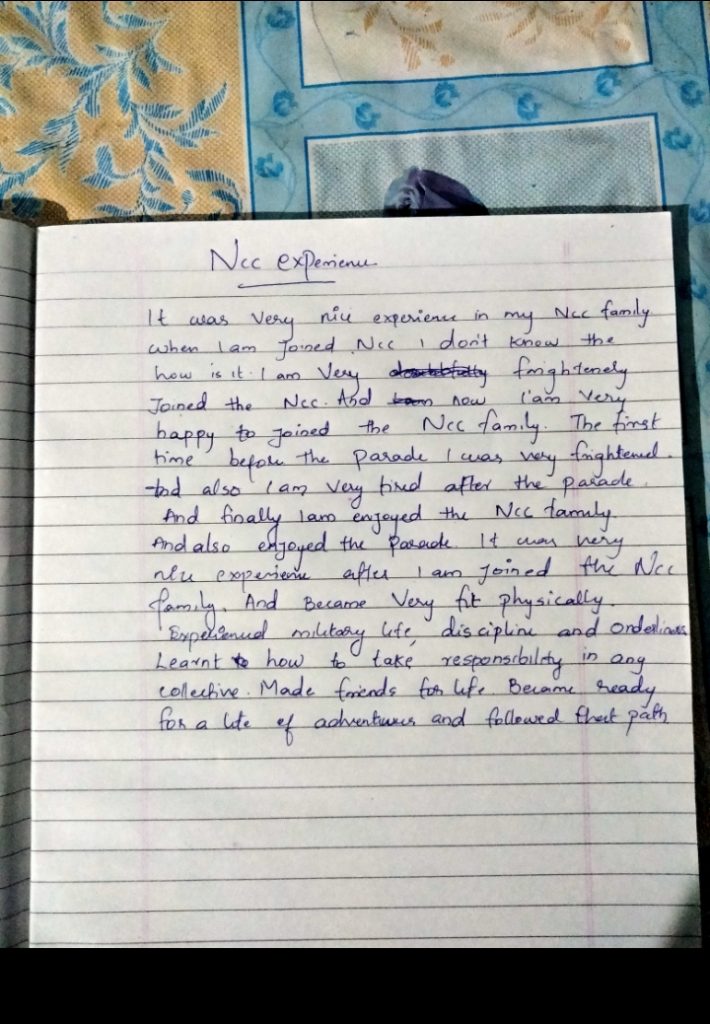 Ncc experience
It was very nice experience in my Ncc family
when I am Joined Ncc I don't know the
how is it. I am Very frightenely
Joined the Ncc. And now I'am very
happy to Joined the Ncc family. The first
time before the Parade I was very frightened.
and also I am very tired after the parade.
And finally I am enjoyed the Ncc family
And also enjoyed the Parade. It was very
nice experience after I am Joined the Ncc
family. And Became Very fit physically.
Experienced military life, discipline and orderliness
Learnt how to take responsibility in any
collective. Made friends for life. Became ready
for a life of adventures and followed that path